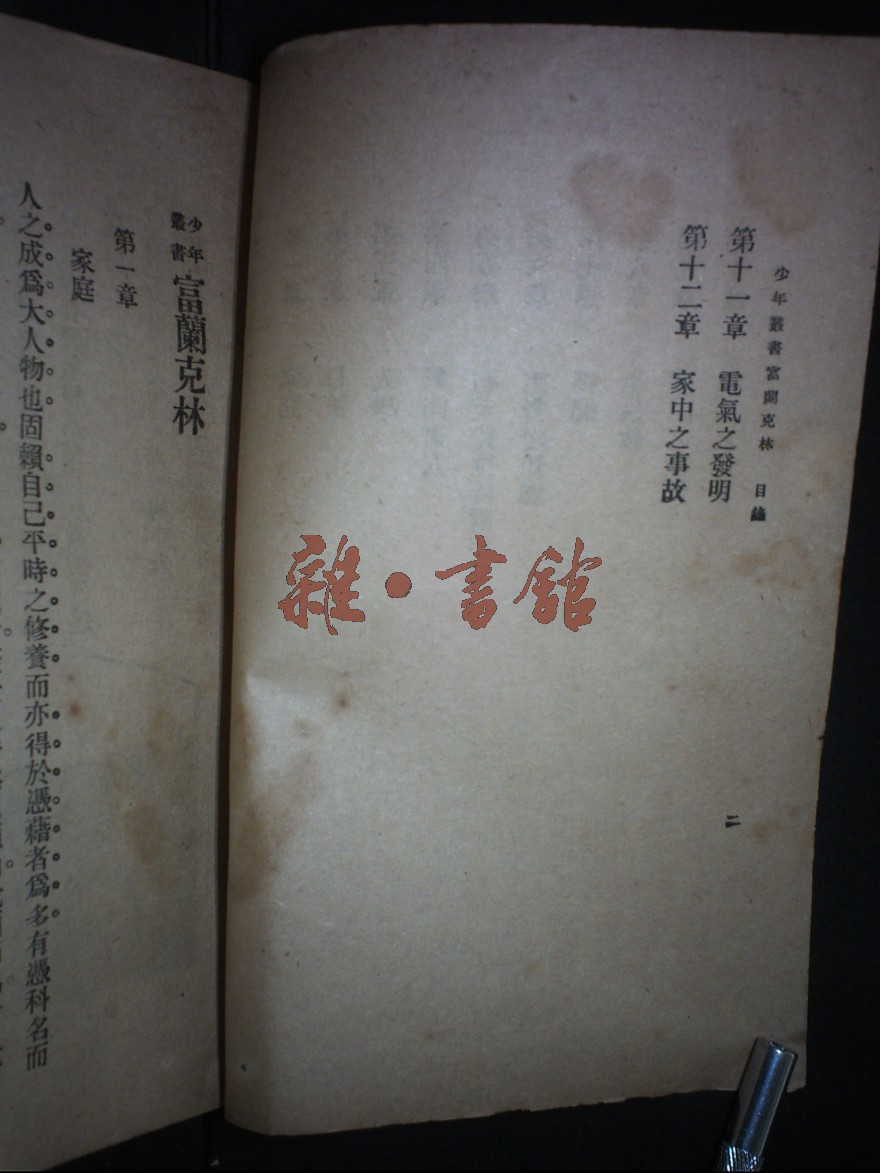 少年叢書富蘭克林 目錄
第十一章 電氣之發明
第十二章 家中之事故
二
雜·書館
少年叢書 富蘭克林
第一章
家庭
人之成爲大人物也固賴自己平時之修養而亦得於憑藉者爲多有憑科名而